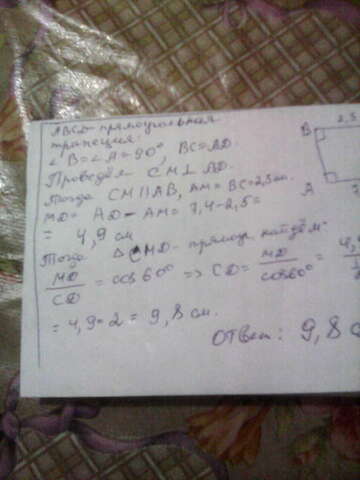 ABCD - прямоугольная
трапеция:
∠B=∠A=90°, BC=AD.
Проведём CM⊥AD.
Тогда CM∥AB, AM=BC=2,5см.
MD = AD - AM = 7,4-2,5=
= 4,9 см
Тогда △CMD - прямоуг. найдём
MD/CD = cos 60° => CD = MD/cos60° = 4,9
= 4,9·2 = 9,8 см.
Ответ: 9,8 с
2,5
B
A